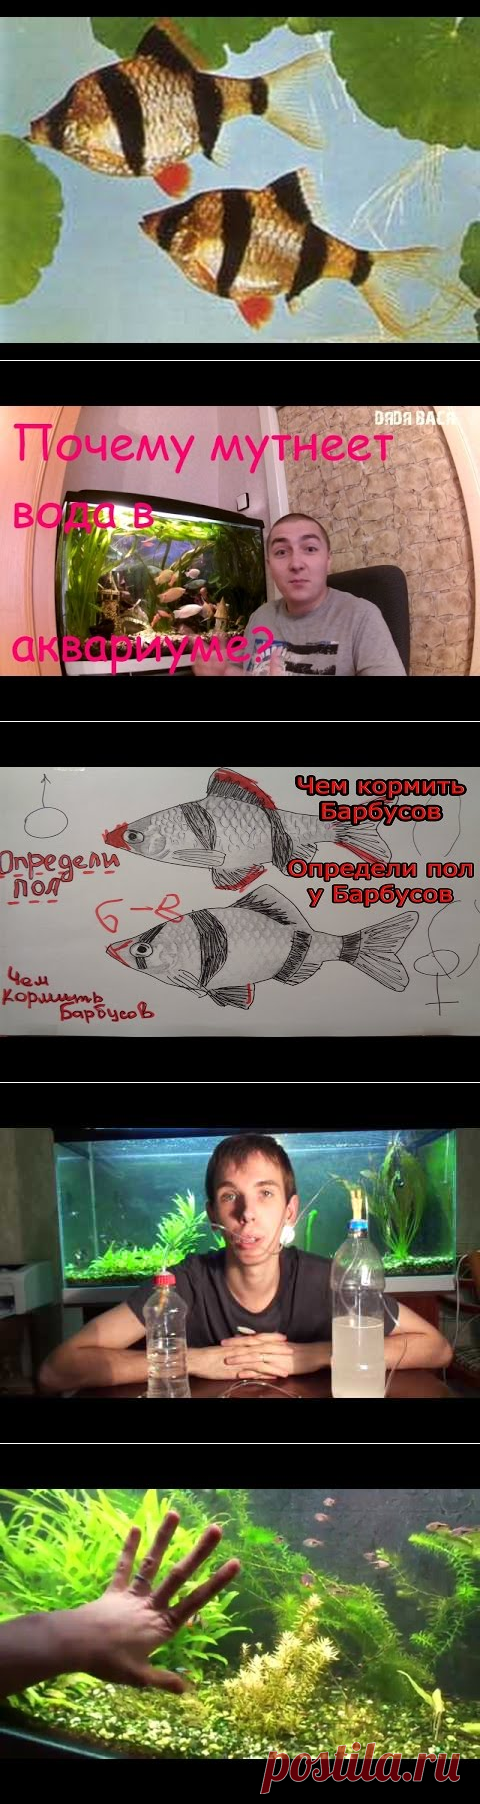 DЯDЯ ВАСЯ
Почему мутнеет
вода в
аквариуме?
Чем кормить
Барбусов
Определи
пол
Определи пол
у Барбусов
Б - В
Чем
кормить
Барбусов
postila.ru